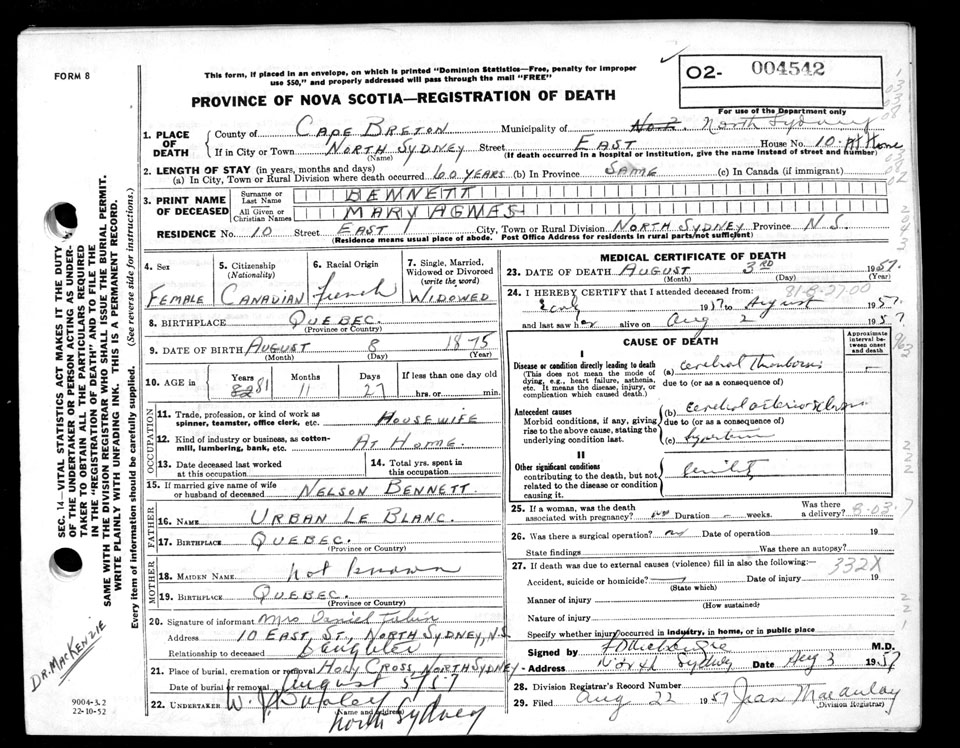 FORM 8
This form, if placed in an envelope, on which is printed "Dominion Statistics—Free, penalty for improper
use $50," and properly addressed will pass through the mail "FREE"
O2- 004542
For use of the Department only
PROVINCE OF NOVA SCOTIA—REGISTRATION OF DEATH
1. PLACE OF DEATH
County of CAPE BRETON Municipality of No.2. North Sydney
If in City or Town NORTH SYDNEY Street EAST House No. 10. At Home
(Name) (If death occurred in a hospital or institution, give the name instead of street and number)
2. LENGTH OF STAY (in years, months and days)
(a) In City, Town or Rural Division where death occurred 60 YEARS (b) In Province SAME (c) In Canada (if immigrant)
3. PRINT NAME OF DECEASED
Surname or Last Name BENNETT
All Given or Christian Names MARY AGNES
RESIDENCE No. 10 Street EAST City, Town or Rural Division NORTH SYDNEY Province N.S.
(Residence means usual place of abode. Post Office Address for residents in rural parts/not sufficient)
4. Sex FEMALE
5. Citizenship (Nationality) CANADIAN
6. Racial Origin French
7. Single, Married, Widowed or Divorced (write the word) WIDOWED
8. BIRTHPLACE QUEBEC.
(Province or Country)
9. DATE OF BIRTH AUGUST 8 1875
(Month) (Day) (Year)
10. AGE in Years 82 81 Months 11 Days 27 If less than one day old
hrs. or min.
OCCUPATION
11. Trade, profession, or kind of work as
spinner, teamster, office clerk, etc. HOUSEWIFE
12. Kind of industry or business, as cotton-
mill, lumbering, bank, etc. AT HOME.
13. Date deceased last worked
at this occupation
14. Total yrs. spent in
this occupation
15. If married give name of wife
or husband of deceased NELSON BENNETT.
FATHER
16. NAME URBAN LE BLANC.
17. BIRTHPLACE QUEBEC.
(Province or Country)
MOTHER
18. MAIDEN NAME not known
19. BIRTHPLACE QUEBEC.
(Province or Country)
20. Signature of informant Mrs Daniel Tobin
Address 10 EAST, ST., NORTH SYDNEY, N.S
Relationship to deceased Daughter
21. Place of burial, cremation or removal HOLY CROSS, NORTH SYDNEY
Date of burial or removal August 5/57
22. UNDERTAKER W.
(Name and address)
North Sydney
MEDICAL CERTIFICATE OF DEATH
23. DATE OF DEATH AUGUST 3RD 1957.
(Month) (Day) (Year)
24. I HEREBY CERTIFY that I attended deceased from: 91-8-27.00
Early 1957 to August 1957.
and last saw her alive on Aug 2 1957
CAUSE OF DEATH
Approximate interval between onset and death
I
Disease or condition directly leading to death
(This does not mean the mode of
dying, e.g., heart failure, asthenia,
etc. It means the disease, injury, or
complication which caused death.)
(a) cerebral thrombosis
due to (or as a consequence of)
Antecedent causes
Morbid conditions, if any, giving
rise to the above cause, stating the
underlying condition last.
(b) cerebral arteriosclerosis
due to (or as a consequence of)
(c)
II
Other significant conditions
contributing to the death, but not
related to the disease or condition
causing it.
Senility
25. If a woman, was the death
associated with pregnancy? Duration – weeks. Was there a delivery?
8-03-7
26. Was there a surgical operation? no Date of operation 19
State findings Was there an autopsy?
27. If death was due to external causes (violence) fill in also the following:—
332X
Accident, suicide or homicide? Date of injury 19
(State which)
Manner of injury
(How sustained)
Nature of injury
Specify whether injury occurred in industry, in home, or in public place
Signed by MacKenzie M.D.
Address North Sydney Date Aug 3 1957
28. Division Registrar's Record Number
29. Filed Aug 22 1957 Jean Macaulay
(Division Registrar)
SEC. 14—VITAL STATISTICS ACT MAKES IT THE DUTY
OF THE UNDERTAKER OR PERSON ACTING AS UNDER-
TAKER TO OBTAIN ALL THE PARTICULARS REQUIRED
IN THE "REGISTRATION OF DEATH" AND TO FILE THE
SAME WITH THE DIVISION REGISTRAR WHO SHALL ISSUE THE BURIAL PERMIT.
WRITE PLAINLY WITH UNFADING INK. THIS IS A PERMANENT RECORD.
Every item of information should be carefully supplied. (See reverse side for instructions.)
DR. MACKENZIE
9004-3.2
22-10-52